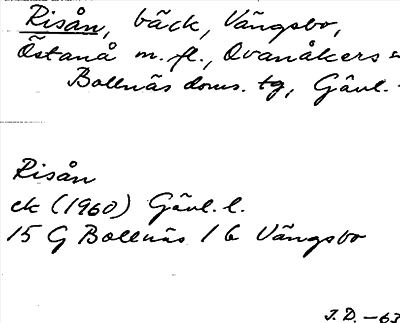 Risån, bäck, Vängsbo,
Östanå m. fl., Ovanåkers s
Bollnäs doms. tg, Gävl.
Risån
ek (1960) Gävl. l.
15 G Bollnäs 1 b Vängsbo
J. D. -63